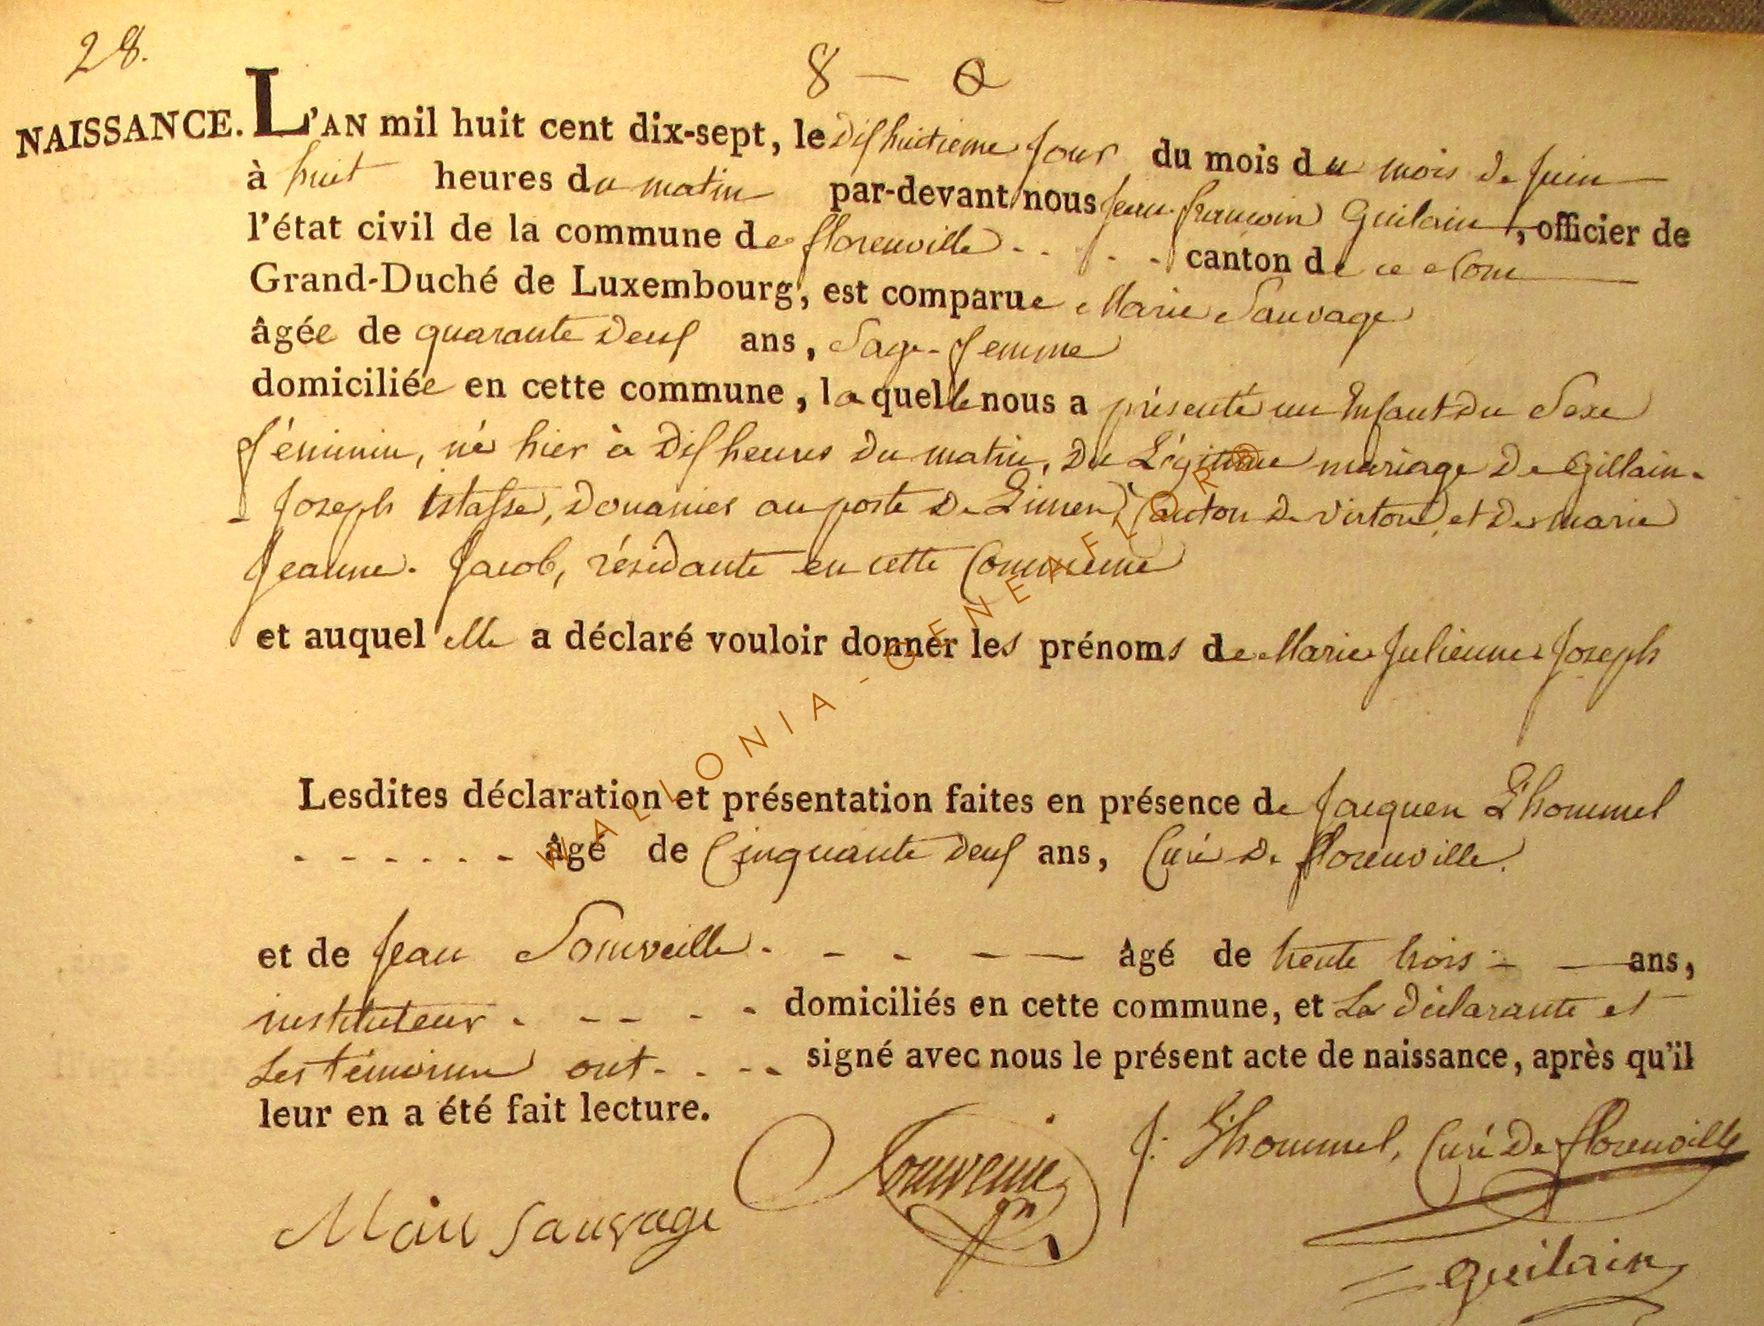 28.
8 — 0
NAISSANCE. L'AN mil huit cent dix-sept, le dishuitieme jour du mois du mois de juin
à huit heures du matin par-devant nous jean françois Guilain, officier de
l'état civil de la commune de florenville - - - - canton de ce nom
Grand-Duché de Luxembourg, est comparue Marie Sauvage
âgée de quarante deus ans, Sage-femme
domiciliée en cette commune, laquelle nous a présenté un Enfant du Sexe
féminin, né hier à dis heures du matin, du Légitime mariage de Gillain-
Joseph Istasse, douanier au poste de Limes, Canton de virton, et de marie
Jeanne Jacob, résidante en cette Commune
et auquel elle a déclaré vouloir donner les prénoms de Marie Julienne Joseph
Lesdites déclaration et présentation faites en présence de Jacques L'hommel
- - - - - - âgé de Cinquante deus ans, Curé de florenville.
et de Jean - - - - — âgé de trente trois - — ans,
instituteur - - - - - domiciliés en cette commune, et La déclarante et
Les témoins ont - - - - signé avec nous le présent acte de naissance, après qu'il
leur en a été fait lecture.
J. L'hommel, Curé de florenville
Marie Sauvage
Guilain
WALLONIA-GENEAFLOR®